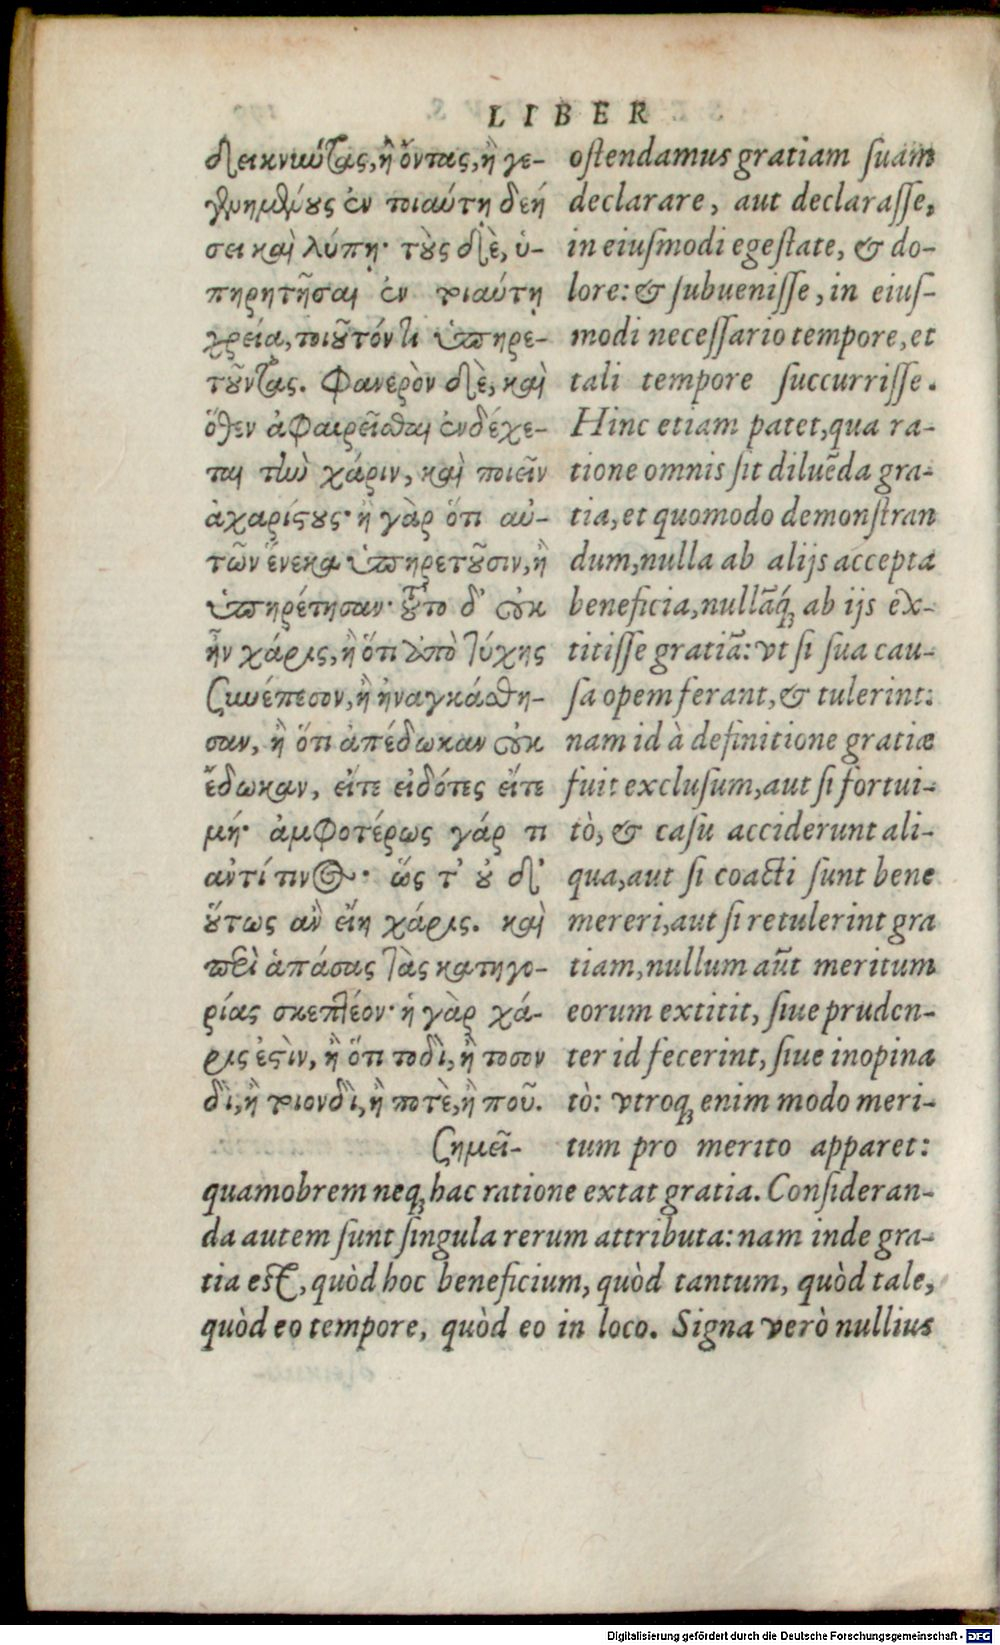 LIBER
δεικνύντας, ἢ ὄντας, ἢ γε-
γενημένους ἐν τοιαύτῃ δεή
σει καὶ λύπῃ· τοὺς δὲ, ὑ-
πηρητῆσαι ἐν τοιαύτῃ
χρείᾳ, τοιοῦτόν τι ὑπηρε-
τοῦντας. Φανερὸν δὲ, καὶ
ὅθεν ἀφαιρεῖσθαι ἐνδέχε-
ται τὴν χάριν, καὶ ποιεῖν
ἀχαρίστους· ἢ γὰρ ὅτι αὑ-
τῶν ἕνεκα ὑπηρετοῦσιν, ἢ
ὑπηρέτησαν· τοῦτο δ' οὐκ
ἦν χάρις, ἢ ὅτι ἀπὸ τύχης
συνέπεσον, ἢ ἠναγκάσθη-
σαν, ἢ ὅτι ἀπέδωκαν οὐκ
ἔδωκαν, εἴτε εἰδότες εἴτε
μή· ἀμφοτέρως γάρ τι
ἀντί τινος· ὥς τ' οὐ δ'
οὕτως ἂν εἴη χάρις. καὶ
περὶ ἁπάσας τὰς κατηγο-
ρίας σκεπτέον· ἡ γὰρ χά-
ρις ἐστὶν, ἢ ὅτι τοδὶ, ἢ τοσον
δὶ, ἢ τοιονδὶ, ἢ ποτὲ, ἢ ποῦ.
Σημεῖ-
ostendamus gratiam suam
declarare, aut declarasse,
in eiusmodi egestate, & do-
lore: & subuenisse, in eius-
modi necessario tempore, et
tali tempore succurrisse.
Hinc etiam patet, qua ra-
tione omnis sit diluẽda gra-
tia, et quomodo demonstran
dum, nulla ab alijs accepta
beneficia, nullãq́; ab ijs ex-
titisse gratiã: vt si sua cau-
sa opem ferant, & tulerint:
nam id à definitione gratiæ
fuit exclusum, aut si fortui-
tò, & casu acciderunt ali-
qua, aut si coacti sunt bene
mereri, aut si retulerint gra
tiam, nullum aũt meritum
eorum extitit, siue pruden-
ter id fecerint, siue inopina
tò: vtroq; enim modo meri-
tum pro merito apparet:
quamobrem neq; hac ratione extat gratia. Consideran-
da autem sunt singula rerum attributa: nam inde gra-
tia est, quòd hoc beneficium, quòd tantum, quòd tale,
quòd eo tempore, quòd eo in loco. Signa verò nullius
Digitalisierung gefördert durch die Deutsche Forschungsgemeinschaft - DFG